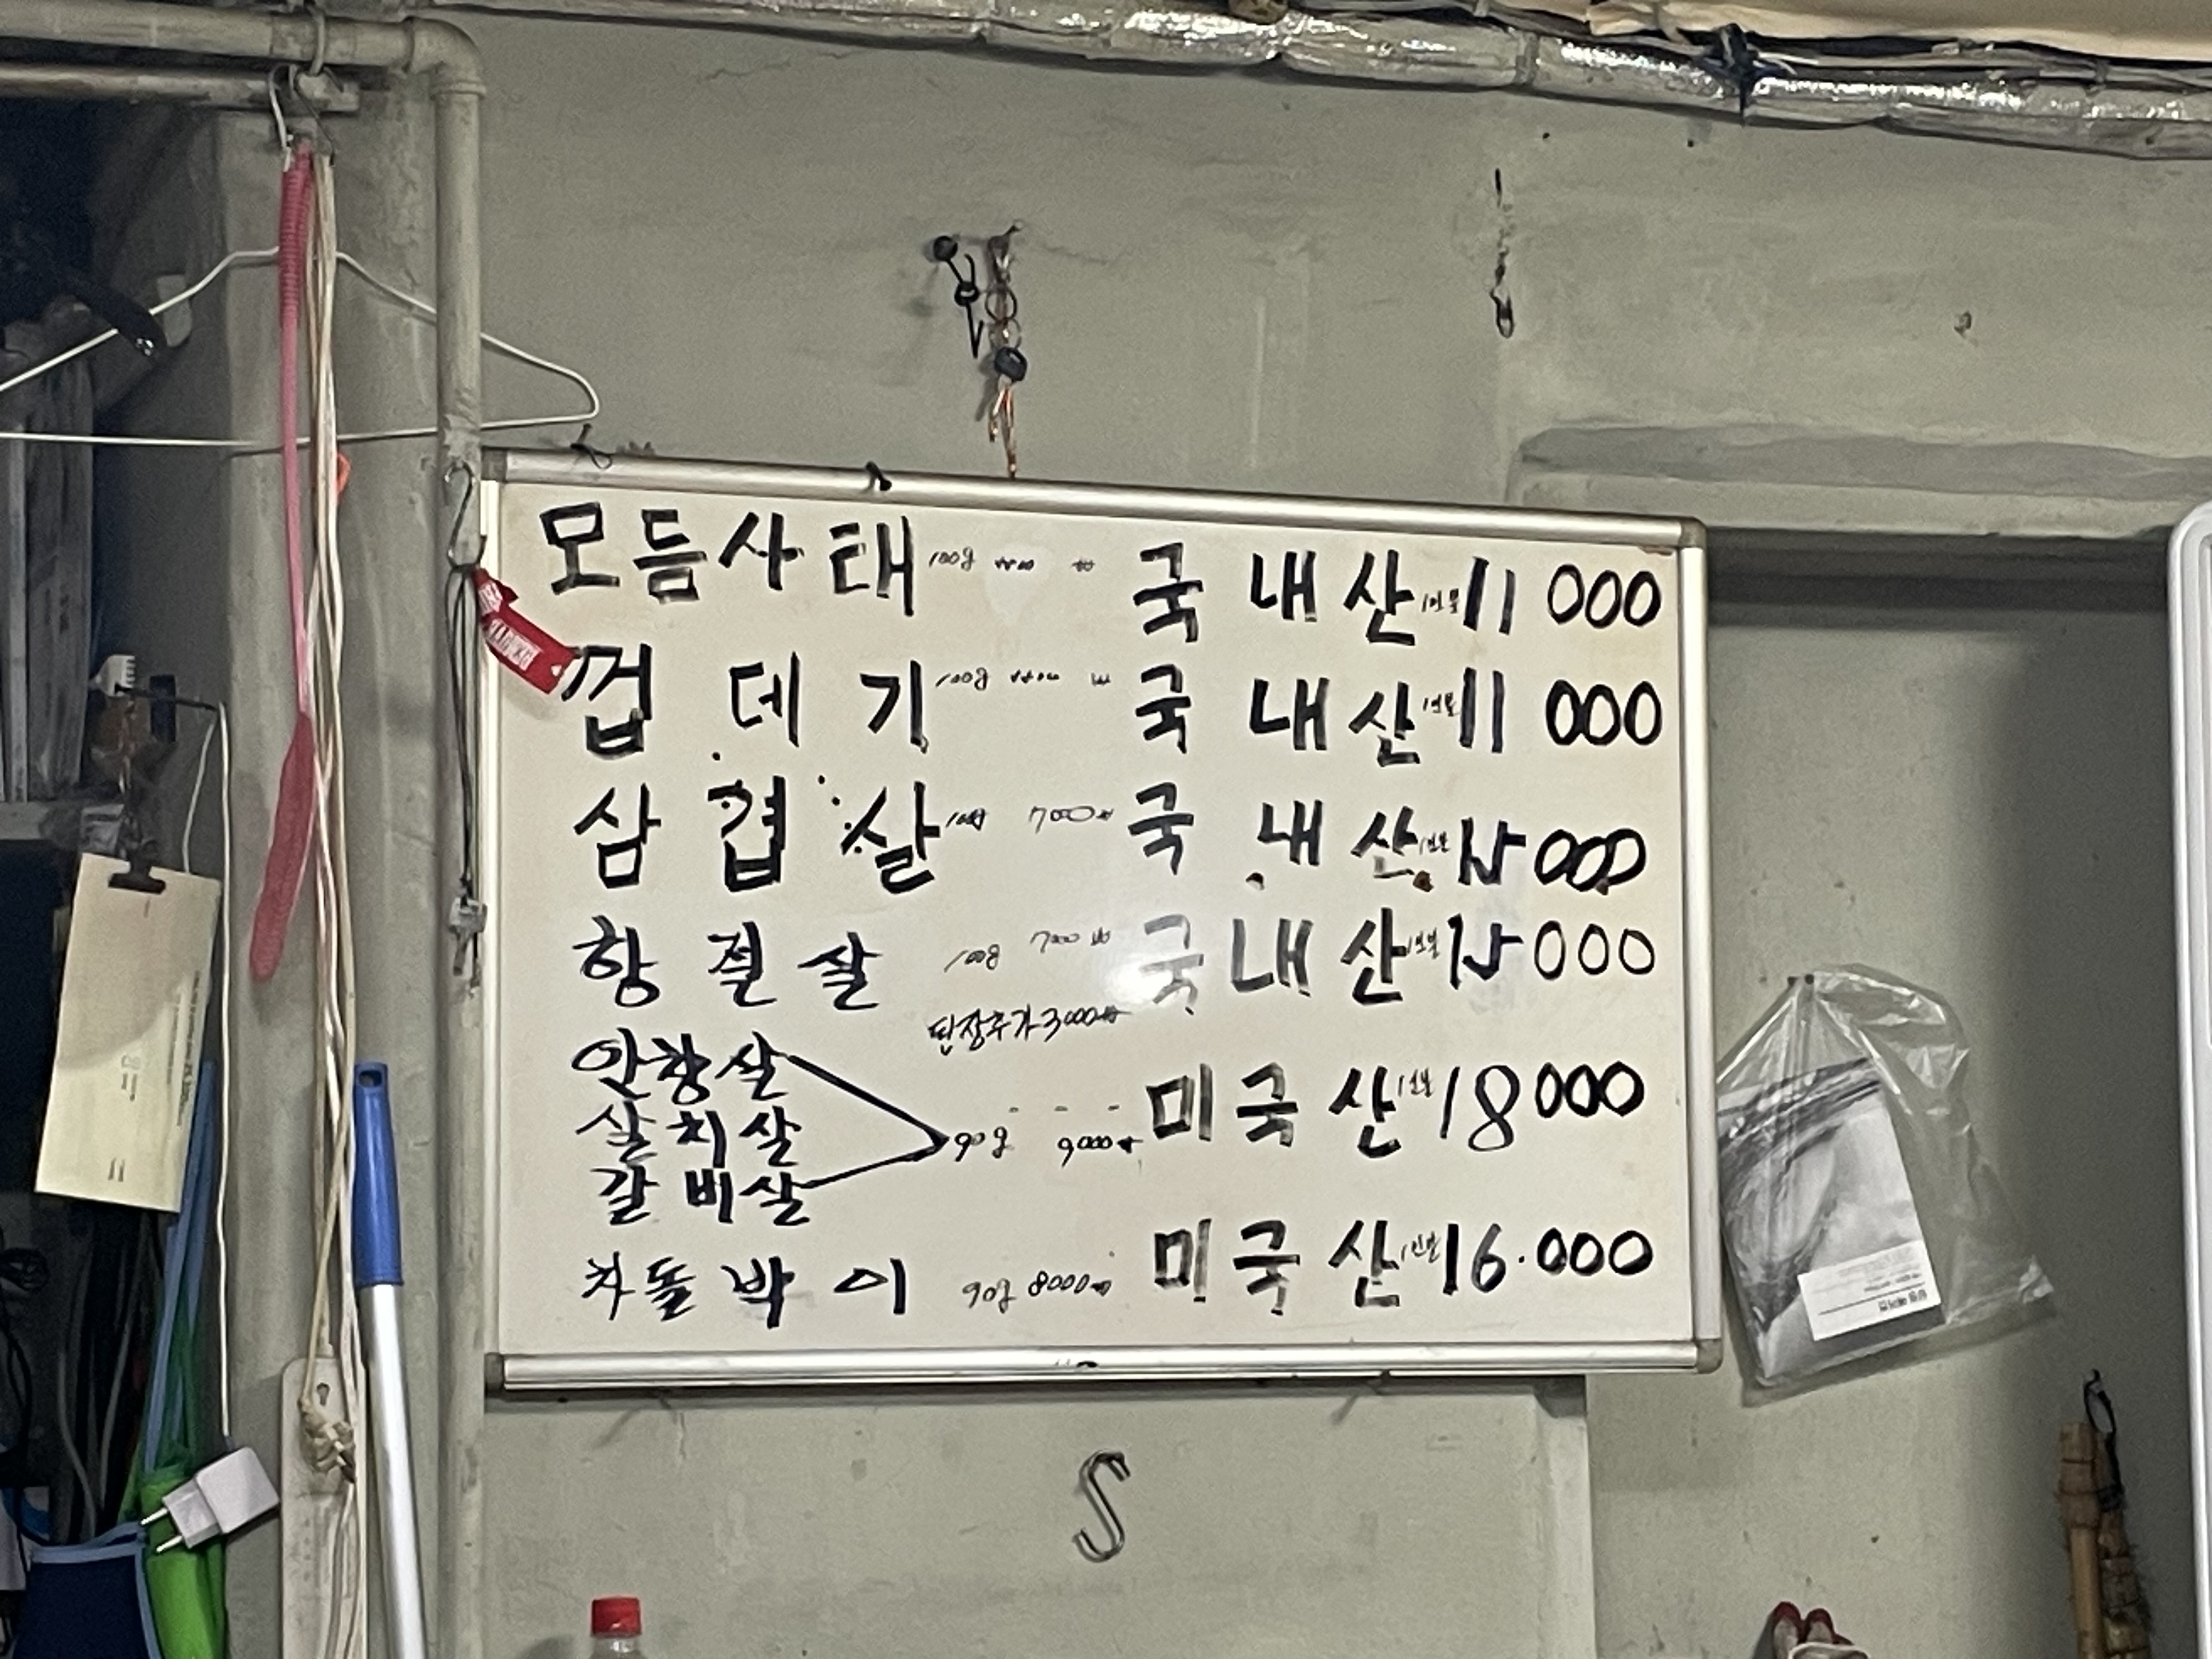 모듬사태 100g 국내산 1인분 11000
껍데기 100g 국내산 1인분 11000
삼겹살 100g 7000 국내산 1인분 15000
항정살 100g 7000 국내산 1인분 15000
된장추가 3000
안창살
살치살
갈비살
90g 9000 미국산 1인분 18000
차돌박이 90g 8000 미국산 1인분 16.000